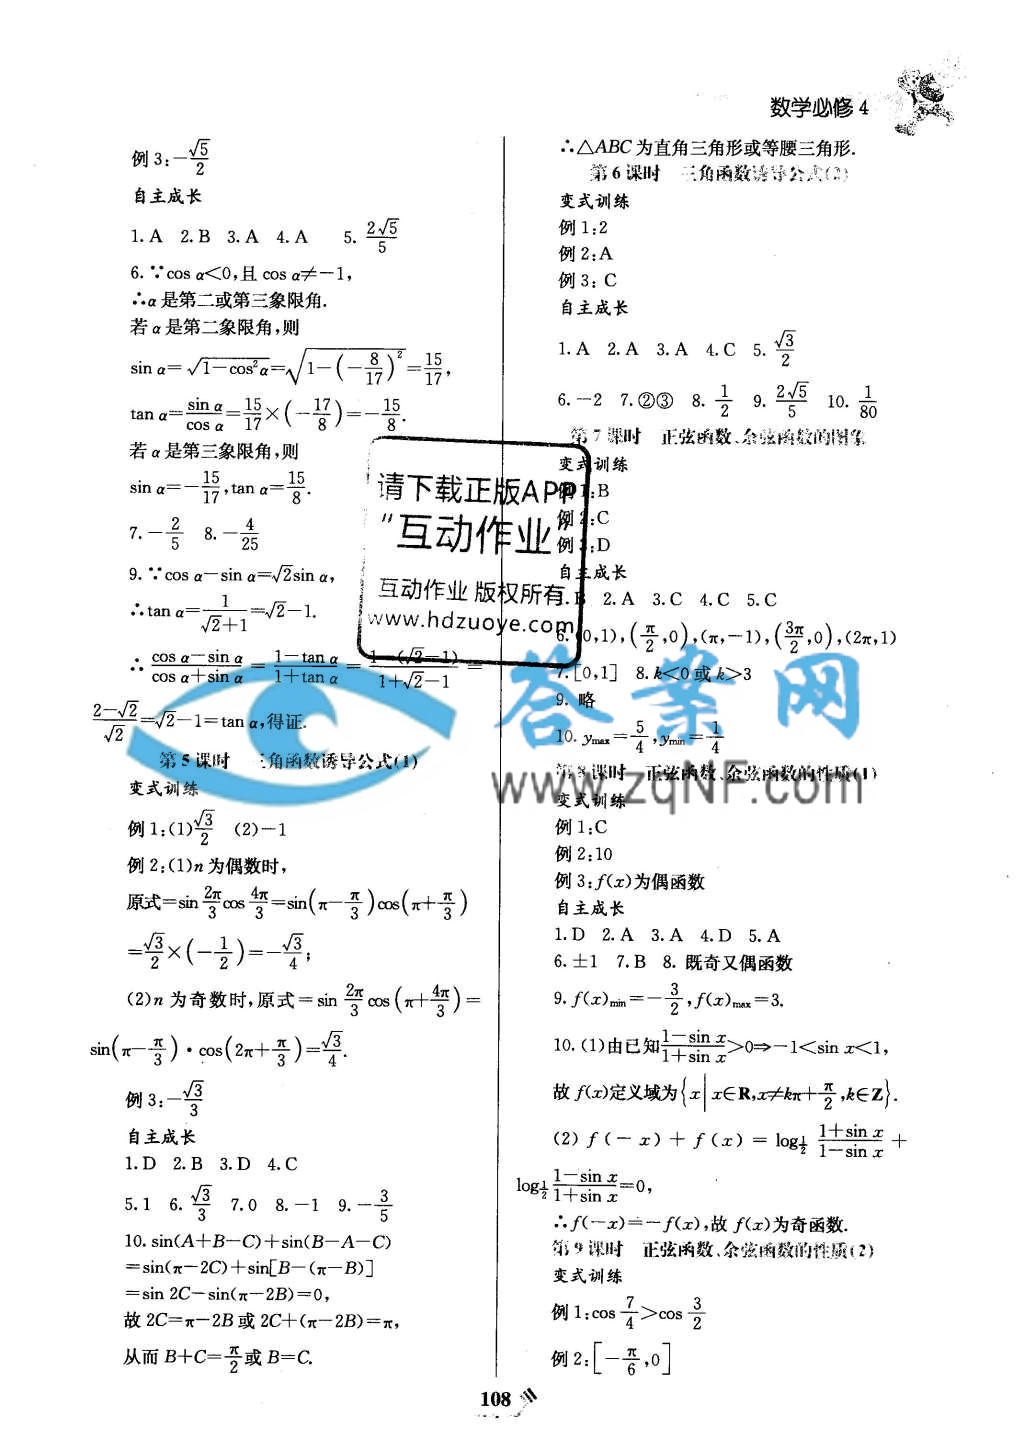 数学必修4
例3:-√5/2
自主成长
1. A 2. B 3. A 4. A 5. 2√5/5
6. ∵cos α<0,且 cos α≠-1,
∴α是第二或第三象限角.
若α是第二象限角,则
sin α=√(1-cos²α)=√(1-(-8/17)²)=15/17,
tan α=sin α/cos α=15/17×(-17/8)=-15/8.
若α是第三象限角,则
sin α=-15/17,tan α=15/8.
7. -2/5 8. -4/25
9. ∵cos α-sin α=√2sin α,
∴tan α=1/(√2+1)=√2-1.
∴(cos α-sin α)/(cos α+sin α)=(1-tan α)/(1+tan α)=(1-(√2-1))/(1+√2-1)=
(2-√2)/√2=√2-1=tan α,得证.
第5课时 三角函数诱导公式(1)
变式训练
例1:(1)√3/2 (2)-1
例2:(1)n为偶数时,
原式=sin 2π/3 cos 4π/3=sin(π-π/3)cos(π+π/3)
=√3/2×(-1/2)=-√3/4;
(2)n为奇数时,原式=sin 2π/3 cos(π+4π/3)=
sin(π-π/3)·cos(2π+π/3)=√3/4.
例3:-√3/3
自主成长
1. D 2. B 3. D 4. C
5. 1 6. √3/3 7. 0 8. -1 9. -3/5
10. sin(A+B-C)+sin(B-A-C)
=sin(π-2C)+sin[B-(π-B)]
=sin 2C-sin(π-2B)=0,
故 2C=π-2B 或 2C+(π-2B)=π,
从而 B+C=π/2 或 B=C.
∴△ABC为直角三角形或等腰三角形.
第6课时 三角函数诱导公式(2)
变式训练
例1:2
例2:A
例3:C
自主成长
1. A 2. A 3. A 4. C 5. √3/2
6. -2 7. ②③ 8. 1/2 9. 2√5/5 10. 1/80
第7课时 正弦函数、余弦函数的图象
变式训练
例1:B
例2:C
例3:D
自主成长
1. B 2. A 3. C 4. C 5. C
6. (0,1),(π/2,0),(π,-1),(3π/2,0),(2π,1)
7. [0,1] 8. k<0或k>3
9. 略
10. ymax=5/4,ymin=1/4
第8课时 正弦函数、余弦函数的性质(1)
变式训练
例1:C
例2:10
例3:f(x)为偶函数
自主成长
1. D 2. A 3. A 4. D 5. A
6. ±1 7. B 8. 既奇又偶函数
9. f(x)min=-3/2,f(x)max=3.
10. (1)由已知(1-sin x)/(1+sin x)>0⇒-1<sin x<1,
故 f(x)定义域为{x|x∈R,x≠kπ+π/2,k∈Z}.
(2) f(-x)+f(x)=log1/2 (1+sin x)/(1-sin x)+
log1/2 (1-sin x)/(1+sin x)=0,
∴f(-x)=-f(x),故 f(x)为奇函数.
第9课时 正弦函数、余弦函数的性质(2)
变式训练
例1:cos 7/4>cos 3/2
例2:[-π/6,0]
108
请下载正版APP
“互动作业”
互动作业 版权所有
www.hdzuoye.com
答案网
www.zqNF.com